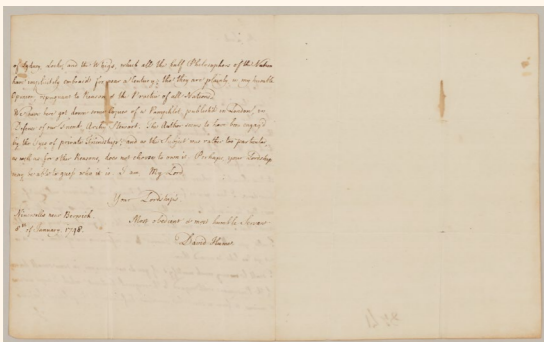 of Sydney, Locke, and the Whigs, which all the half Philosophers of the Nation
have implicitely embrac'd for near a Century; tho' they are plainly, in my humble
Opinion, repugnant to Reason & the Practice of all Nations.
We have here got down some Copies of a Pamphlet, publish'd in London, in
Defence of our Friend, Archy Stewart. The Author seems to have been engag'd
by the Tyes of private Friendship; and as the Subject was rather too particular
as well as for other Reasons, does not choose to own it. Perhaps, your Lordship
may be able to guess who it is. I am My Lord
Your Lordship's
Ninewells near Berwick
Most obedient & most humble Servant
of January 1748.
David Hume